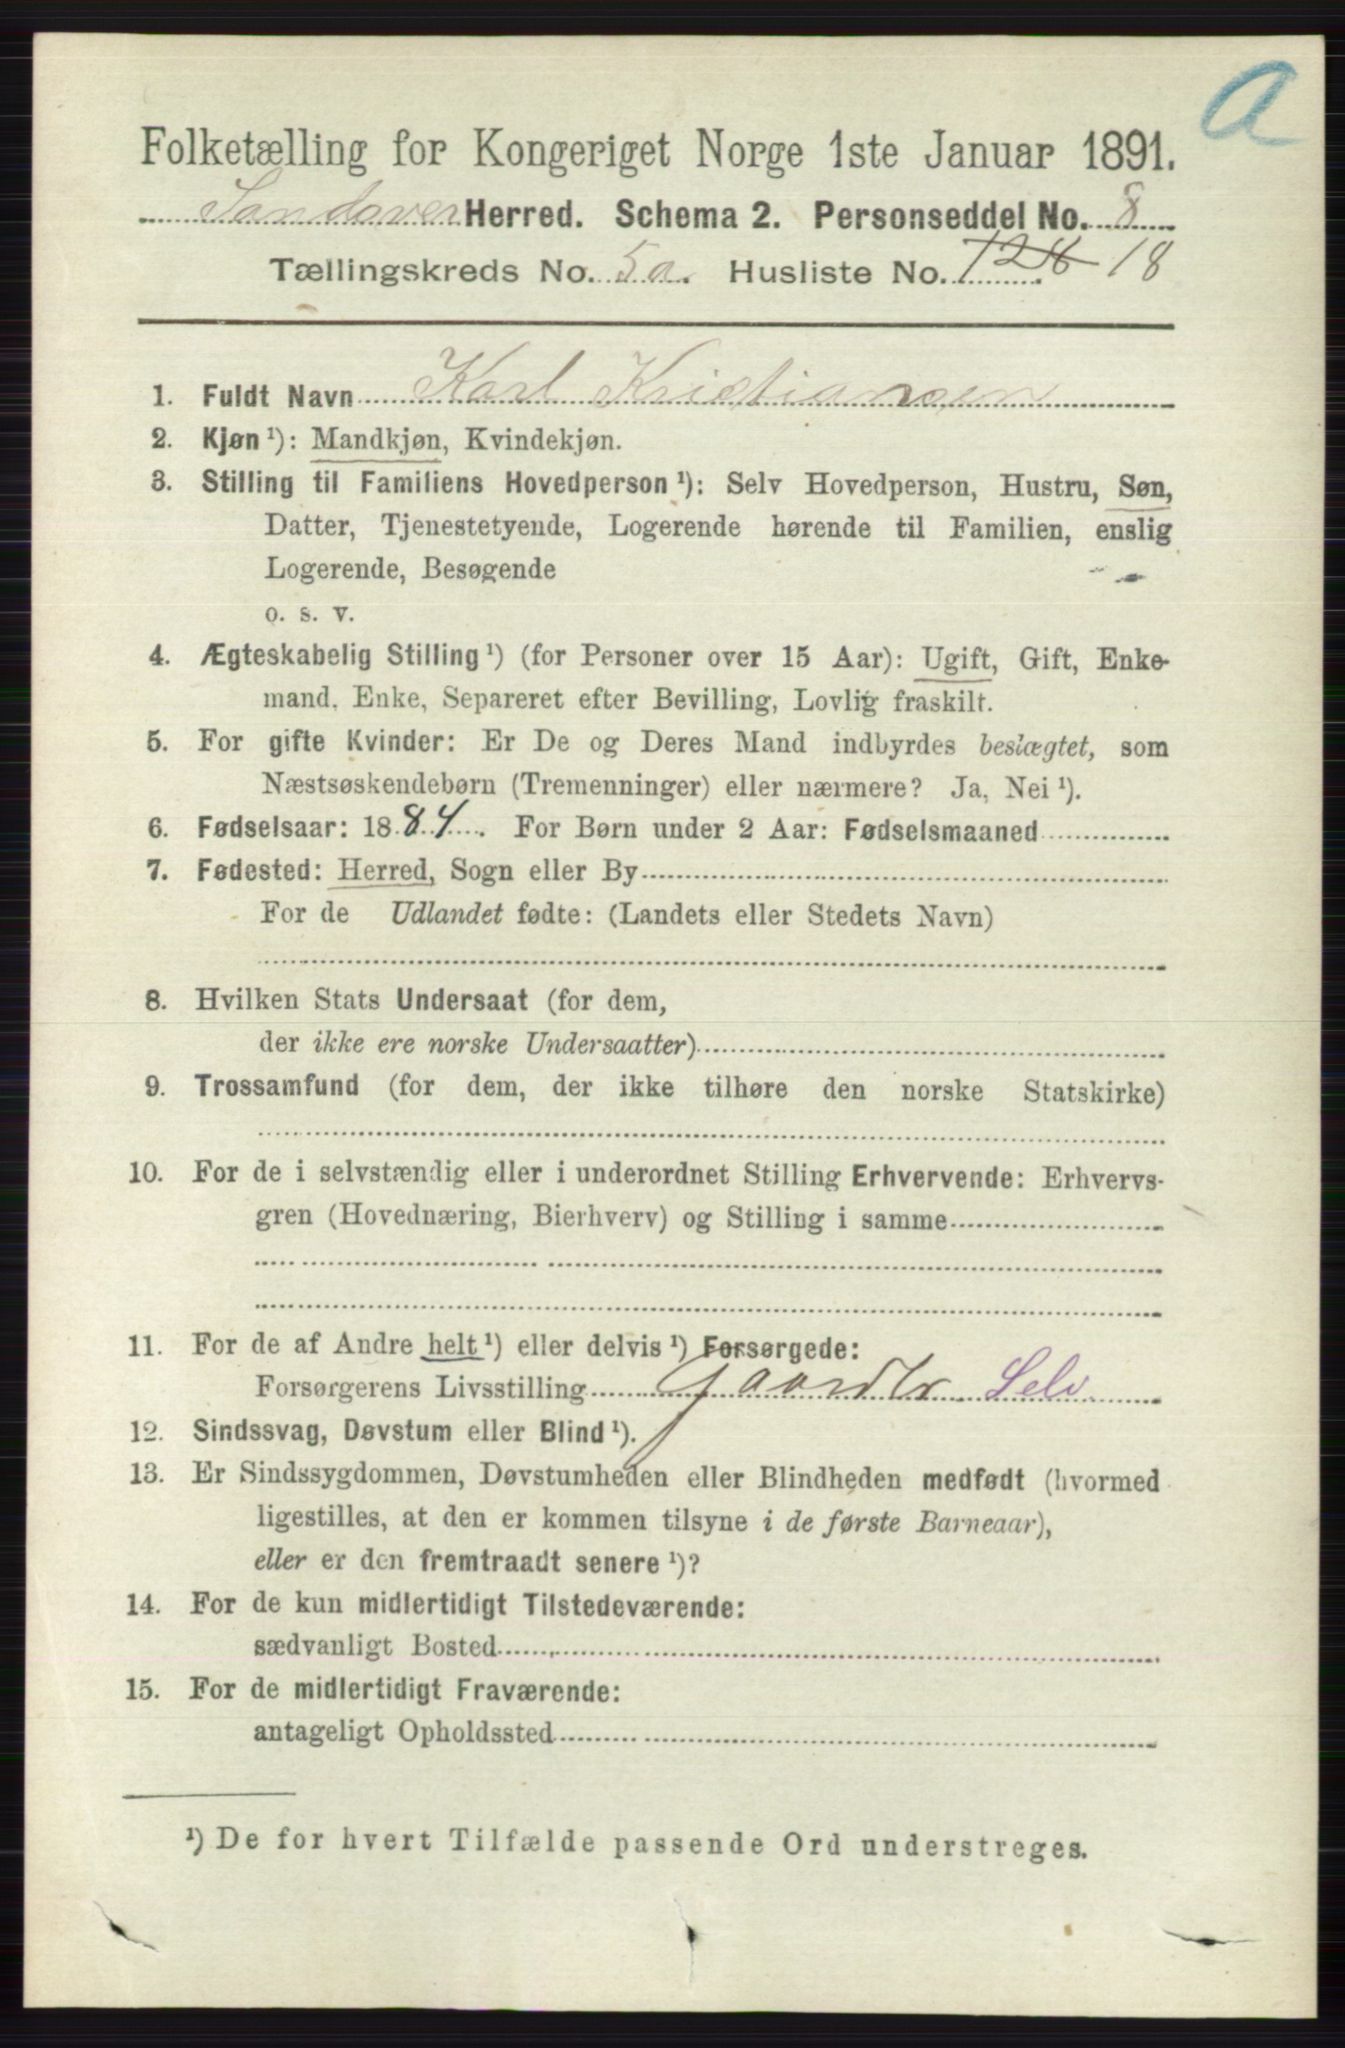 a
Folketælling for Kongeriget Norge 1ste Januar 1891.
Sandsver Herred. Schema 2. Personseddel No. 8
Tællingskreds No. 5a. Husliste No. 128 18
1. Fuldt Navn Karl Kristiansen
2. Kjøn ¹): Mandkjøn, Kvindekjøn.
3. Stilling til Familiens Hovedperson ¹): Selv Hovedperson, Hustru, Søn,
Datter, Tjenestetyende, Logerende hørende til Familien, enslig
Logerende, Besøgende
o. s. v.
4. Ægteskabelig Stilling ¹) (for Personer over 15 Aar): Ugift, Gift, Enke-
mand, Enke, Separeret efter Bevilling, Lovlig fraskilt.
5. For gifte Kvinder: Er De og Deres Mand indbyrdes beslægtet, som
Næstsøskendebørn (Tremenninger) eller nærmere? Ja, Nei ¹).
6. Fødselsaar: 1884. For Børn under 2 Aar: Fødselsmaaned
7. Fødested: Herred, Sogn eller By
For de Udlandet fødte: (Landets eller Stedets Navn)
8. Hvilken Stats Undersaat (for dem,
der ikke ere norske Undersaatter)
9. Trossamfund (for dem, der ikke tilhøre den norske Statskirke)
10. For de i selvstændig eller i underordnet Stilling Erhvervende: Erhvervs-
gren (Hovednæring, Bierhverv) og Stilling i samme
11. For de af Andre helt ¹) eller delvis ¹) Forsørgede:
Forsørgerens Livsstilling Gaardbr. Selv.
12. Sindssvag, Døvstum eller Blind ¹).
13. Er Sindssygdommen, Døvstumheden eller Blindheden medfødt (hvormed
ligestilles, at den er kommen tilsyne i de første Barneaar),
eller er den fremtraadt senere ¹)?
14. For de kun midlertidigt Tilstedeværende:
sædvanligt Bosted
15. For de midlertidigt Fraværende:
antageligt Opholdssted
¹) De for hvert Tilfælde passende Ord understreges.